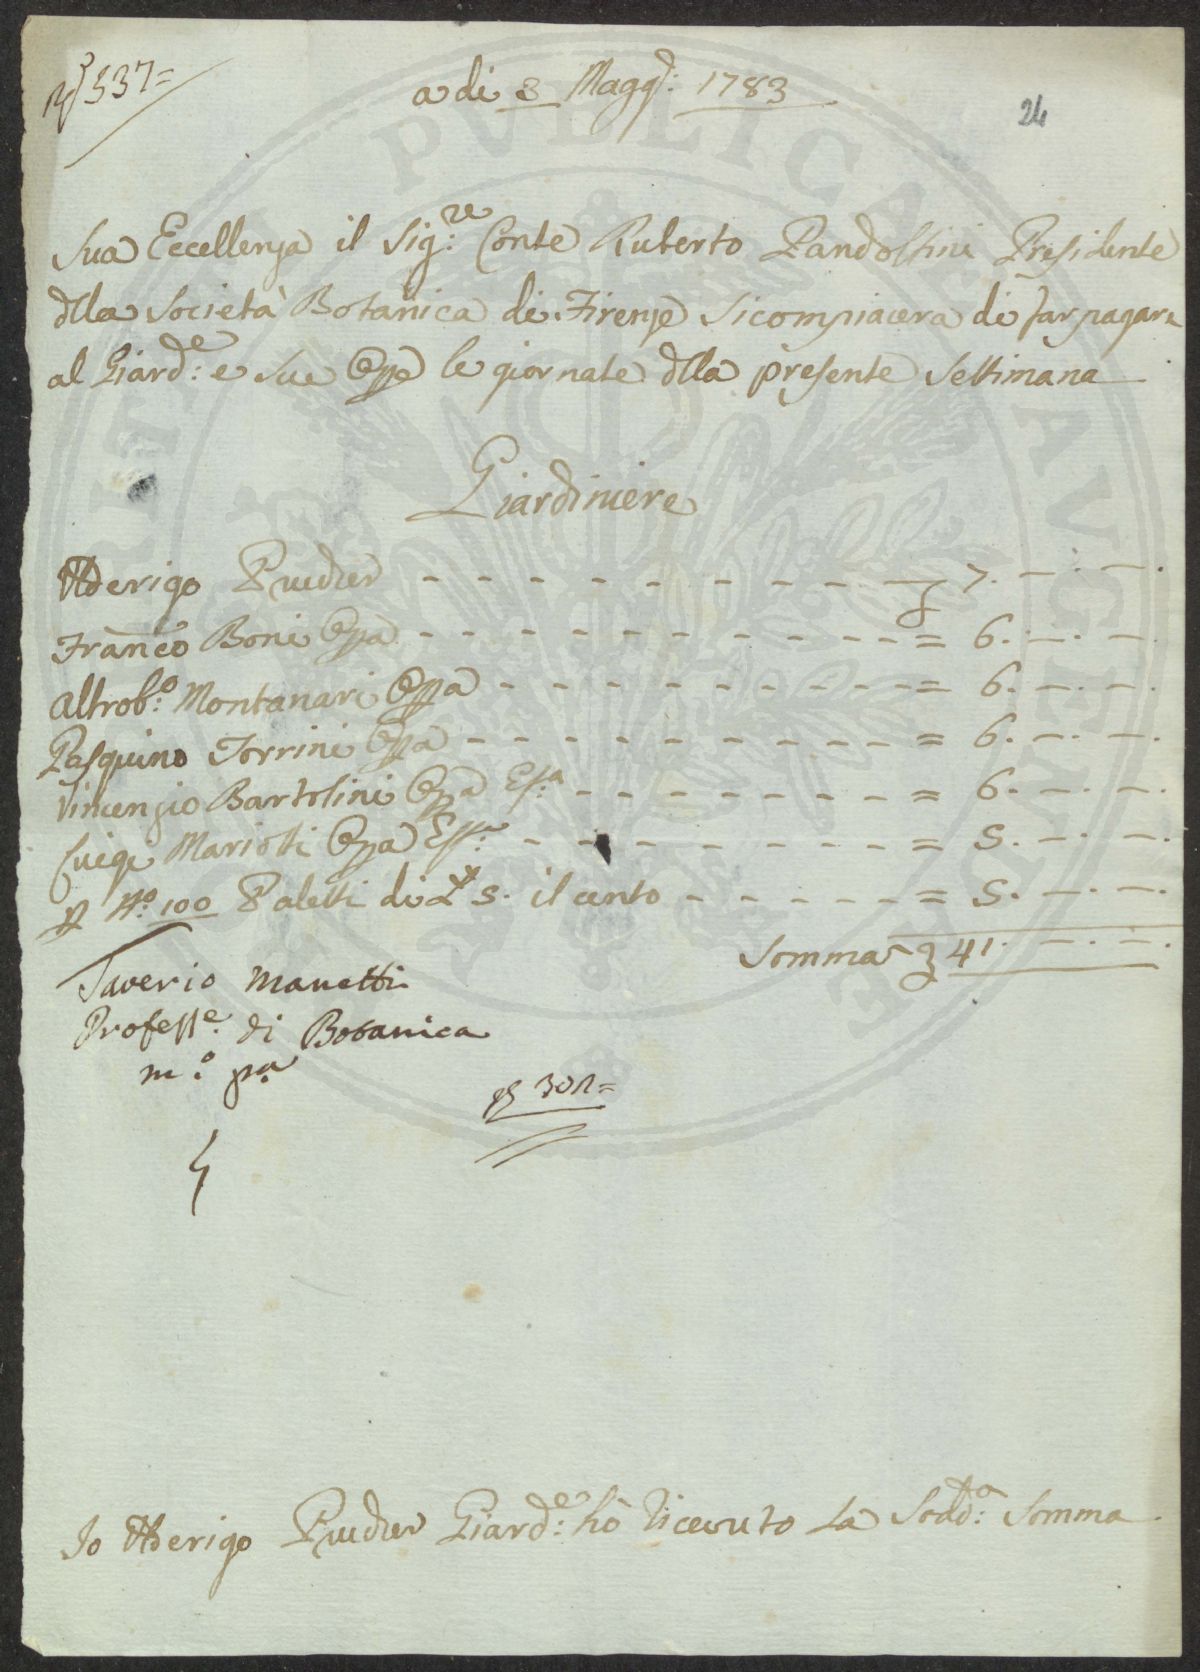 537=
a di 3 Magg: 1783
24
Sua Eccellenza il Sig:re Conte Ruberto Pandolfini Presidente
dlla Società Botanica di Firenze si compiacera di far pagare
al Giard:e e sue Oppe le giornate dlla presente Settimana
Giardiniere
7. —. —.
Franco Boni Oppa = 6. —. —.
Altrob:o Montanari Oppa = 6. —. —.
Pasquino Torrini Oppa = 6. —. —.
Vincenzio Bartolini Oppa = 6. —. —.
Luigi Mariotti Oppa = 5. —. —.
N:o 100 Paletti di £ 5. il cento = 5. —. —.
Somma 41. —. —.
Saverio Manetti
Profess:e di Botanica
m:o pa
301=
Io Giard:e hò Ricevuto La Sodd:a Somma